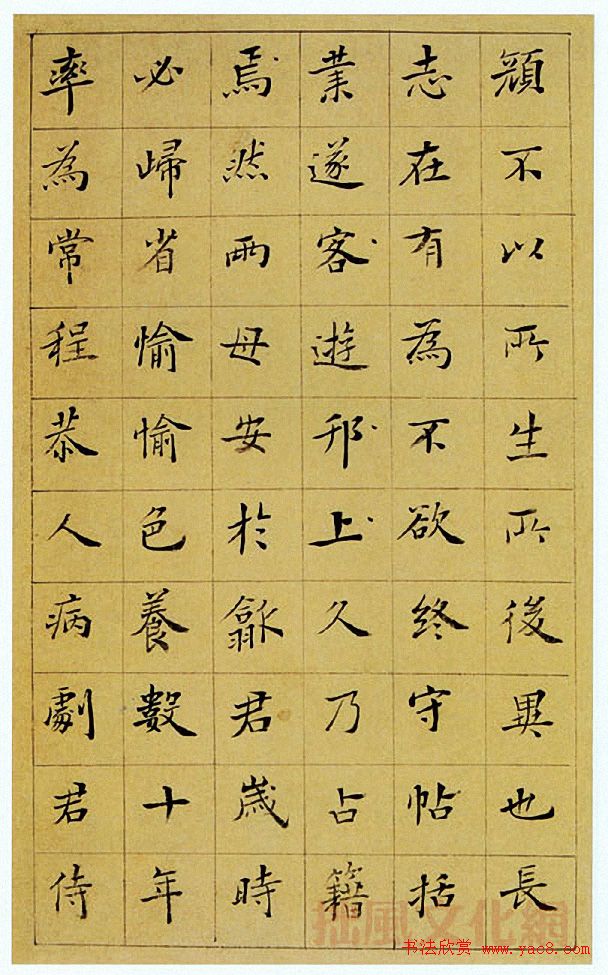 頎不以所生所後異也長
志在有為不欲終守帖括
業遂客遊邗上久乃占籍
焉然兩母安於歙君歲時
必歸省愉愉色養數十年
率為常程恭人病劇君侍
拙風文化網
书法欣赏 www.yac8.com